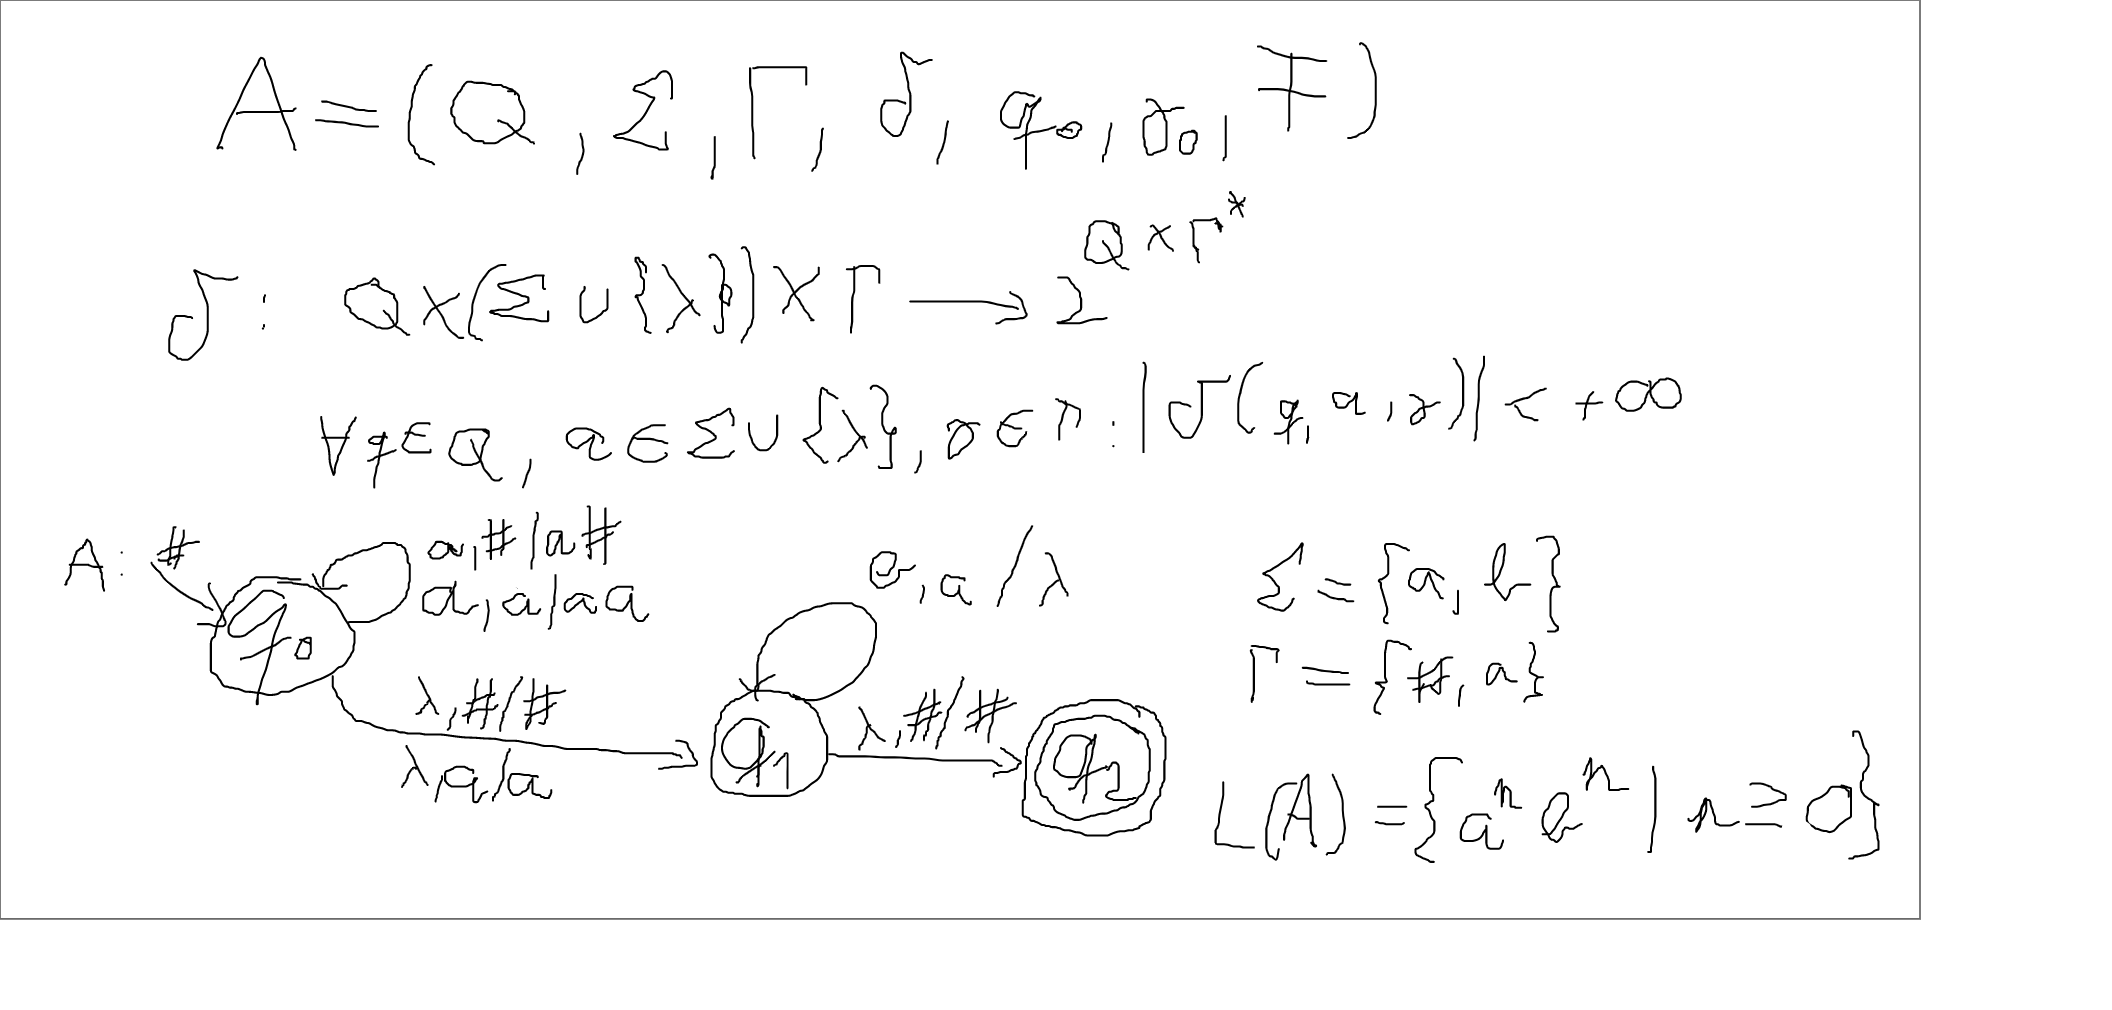 A = (Q, Σ, Γ, δ, q₀, γ₀, F)
δ: Q × (Σ ∪ {λ}) × Γ → 2^(Q × Γ*)
∀q ∈ Q, a ∈ Σ ∪ {λ}, γ ∈ Γ: |δ(q, a, γ)| < +∞
A: #
a, # / a#
a, a / aa
q₀
λ, # / #
λ, a / a
b, a / λ
q₁
λ, # / #
q₂
Σ = {a, b}
Γ = {#, a}
L(A) = {aⁿ bⁿ | n ≥ 0}